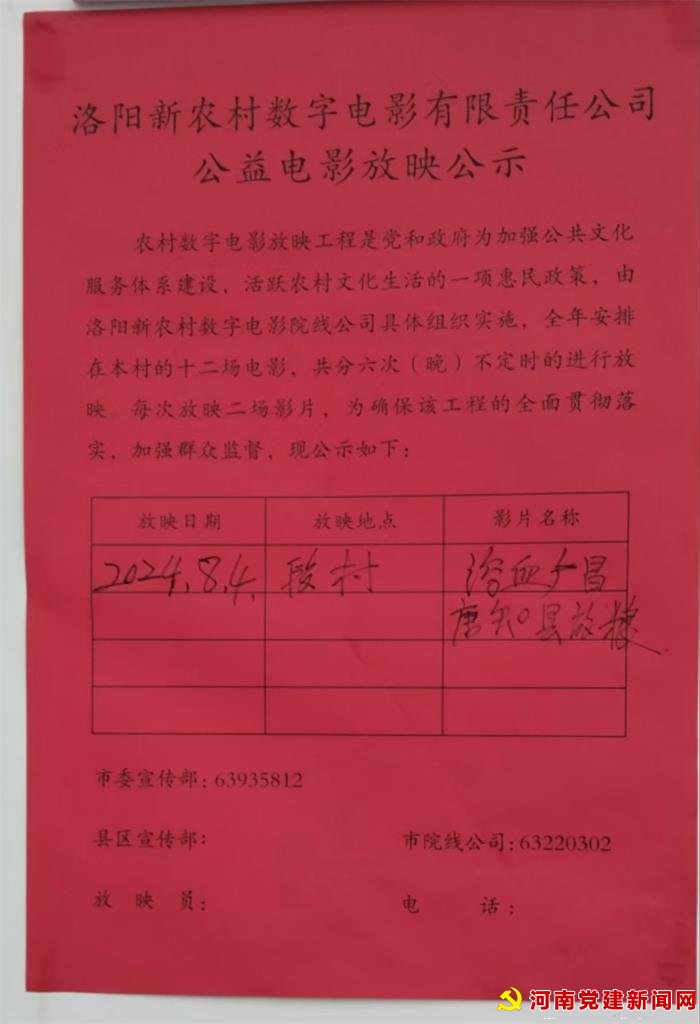 洛阳新农村数字电影有限责任公司
公益电影放映公示
农村数字电影放映工程是党和政府为加强公共文化
服务体系建设，活跃农村文化生活的一项惠民政策，由
洛阳新农村数字电影院线公司具体组织实施，全年安排
在本村的十二场电影，共分六次（晚）不定时的进行放
映。每次放映二场影片，为确保该工程的全面贯彻落
实，加强群众监督，现公示如下：
放映日期 放映地点 影片名称
2024.8.4. 段村 浴血广昌
唐知县放粮
市委宣传部：63935812
县区宣传部：
市院线公司：63220302
放映员：
电话：
河南党建新闻网